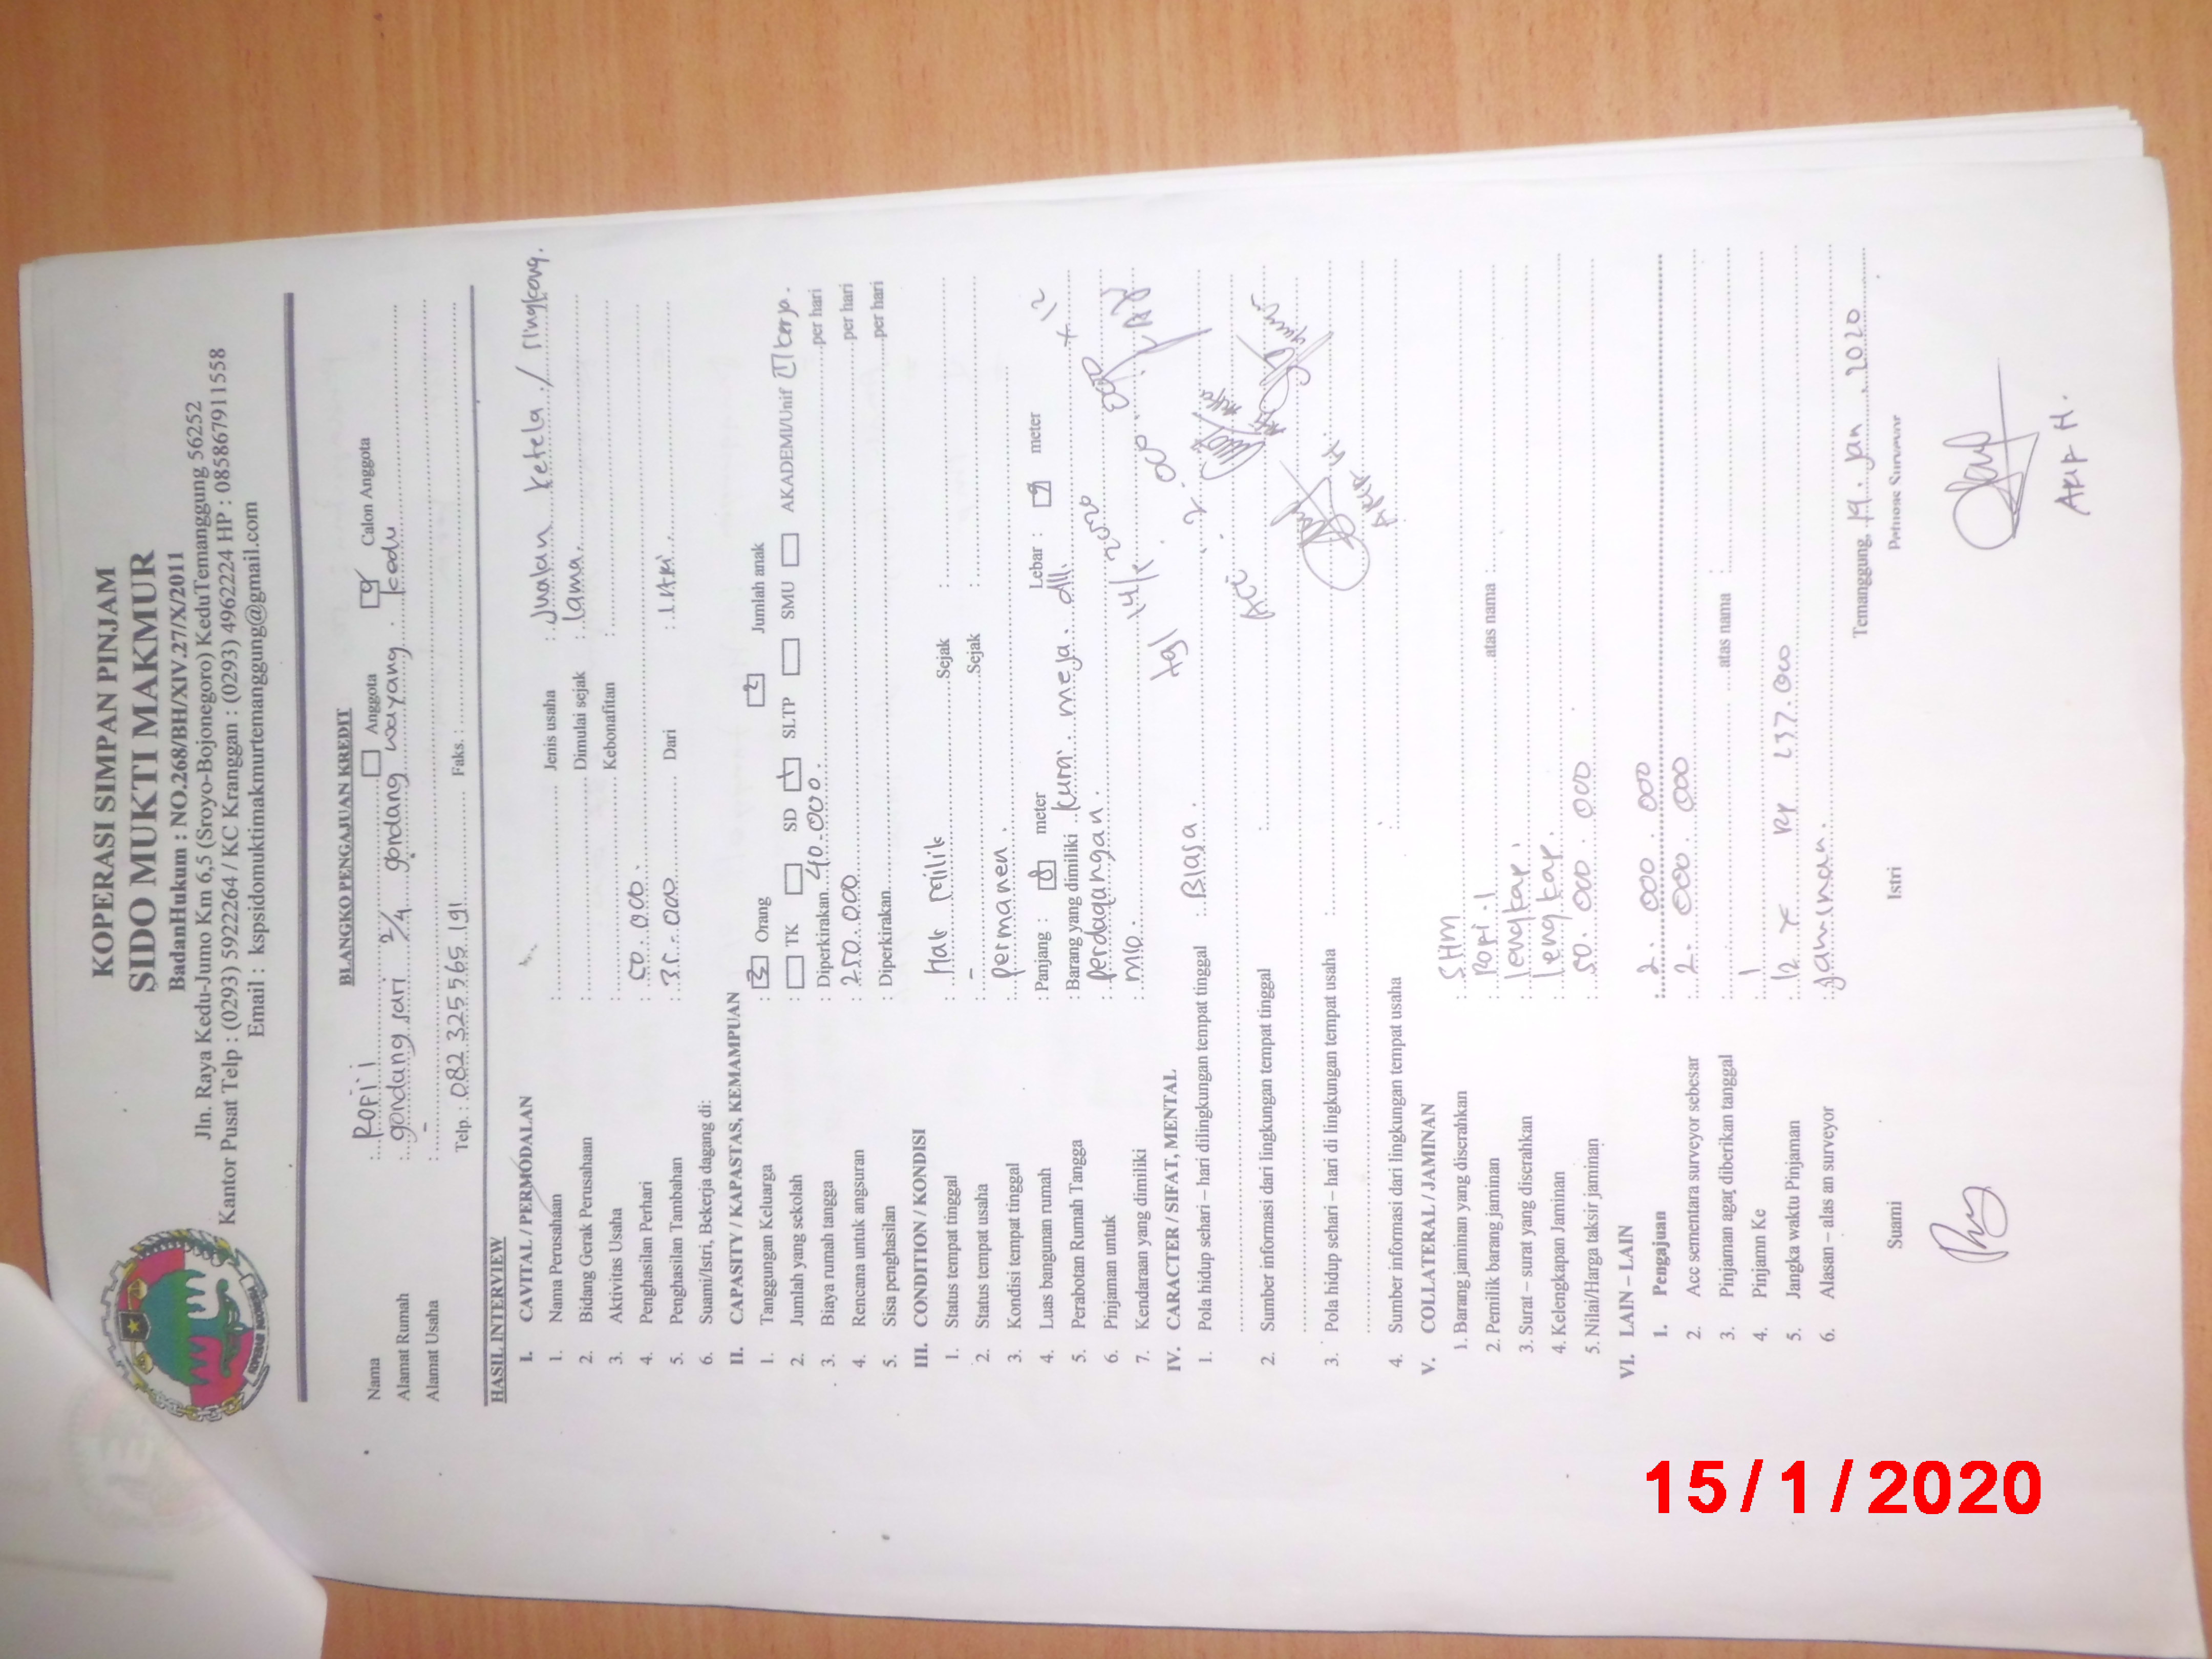 KOPERASI SIMPAN PINJAM
SIDO MUKTI MAKMUR
BadanHukum : NO.268/BH/XIV.27/X/2011
Jln. Raya Kedu-Jumo Km 6,5 (Sroyo-Bojonegoro) KeduTemanggung 56252
Kantor Pusat Telp : (0293) 5922264 / KC Kranggan : (0293) 4962224 HP : 085867911558
Email : kspsidomuktimakmurtemanggung@gmail.com
BLANGKO PENGAJUAN KREDIT
Nama : Rofi'i Anggota Calon Anggota
Alamat Rumah : gondang sari 2/4 gondang wayang . kedu
Alamat Usaha : -
Telp. : 082 325 565 191 Faks. :
HASIL INTERVIEW
I. CAVITAL / PERMODALAN
1. Nama Perusahaan : Jenis usaha : Jualan ketela / singkong.
2. Bidang Gerak Perusahaan : Dimulai sejak : lama.
3. Aktivitas Usaha : Kebonafitan :
4. Penghasilan Perhari : 50.000.
5. Penghasilan Tambahan : 35.000 Dari :
6. Suami/Istri, Bekerja dagang di:
II. CAPASITY / KAPASTAS, KEMAMPUAN
1. Tanggungan Keluarga : 3 Orang Jumlah anak
2. Jumlah yang sekolah : TK SD 1 SLTP SMU AKADEMI/Unif 1 kerja.
3. Biaya rumah tangga : Diperkirakan 40.000. per hari
4. Rencana untuk angsuran : 250.000 per hari
5. Sisa penghasilan : Diperkirakan per hari
III. CONDITION / KONDISI
1. Status tempat tinggal : Hak Milik Sejak :
2. Status tempat usaha : - Sejak :
3. Kondisi tempat tinggal : permanen.
4. Luas bangunan rumah : Panjang : 8 meter Lebar : 9 meter
5. Perabotan Rumah Tangga : Barang yang dimiliki kursi meja. dll. x 12
6. Pinjaman untuk : perdagangan. 2000
7. Kendaraan yang dimiliki : Mio. 14/1
tgl
IV. CARACTER / SIFAT, MENTAL
1. Pola hidup sehari – hari dilingkungan tempat tinggal : Biasa.
Acc
2. Sumber informasi dari lingkungan tempat tinggal :
3. Pola hidup sehari – hari di lingkungan tempat usaha :
4. Sumber informasi dari lingkungan tempat usaha :
V. COLLATERAL / JAMINAN
1. Barang jaminan yang diserahkan : SHM
2. Pemilik barang jaminan : Rofi'i atas nama :
3. Surat – surat yang diserahkan : lengkap.
4. Kelengkapan Jaminan : lengkap.
5. Nilai/Harga taksir jaminan : 50.000.000
VI. LAIN – LAIN
1. Pengajuan : 2.000.000
2. Acc sementara surveyor sebesar : 2.000.000
3. Pinjaman agar diberikan tanggal : atas nama :
4. Pinjamn Ke : 1
5. Jangka waktu Pinjaman : 12 x Rp 237.000
6. Alasan – alas an surveyor : Jaminan.
Temanggung, 14. Jan . 2020
Suami Istri Petugas Surveyor
15/1/2020